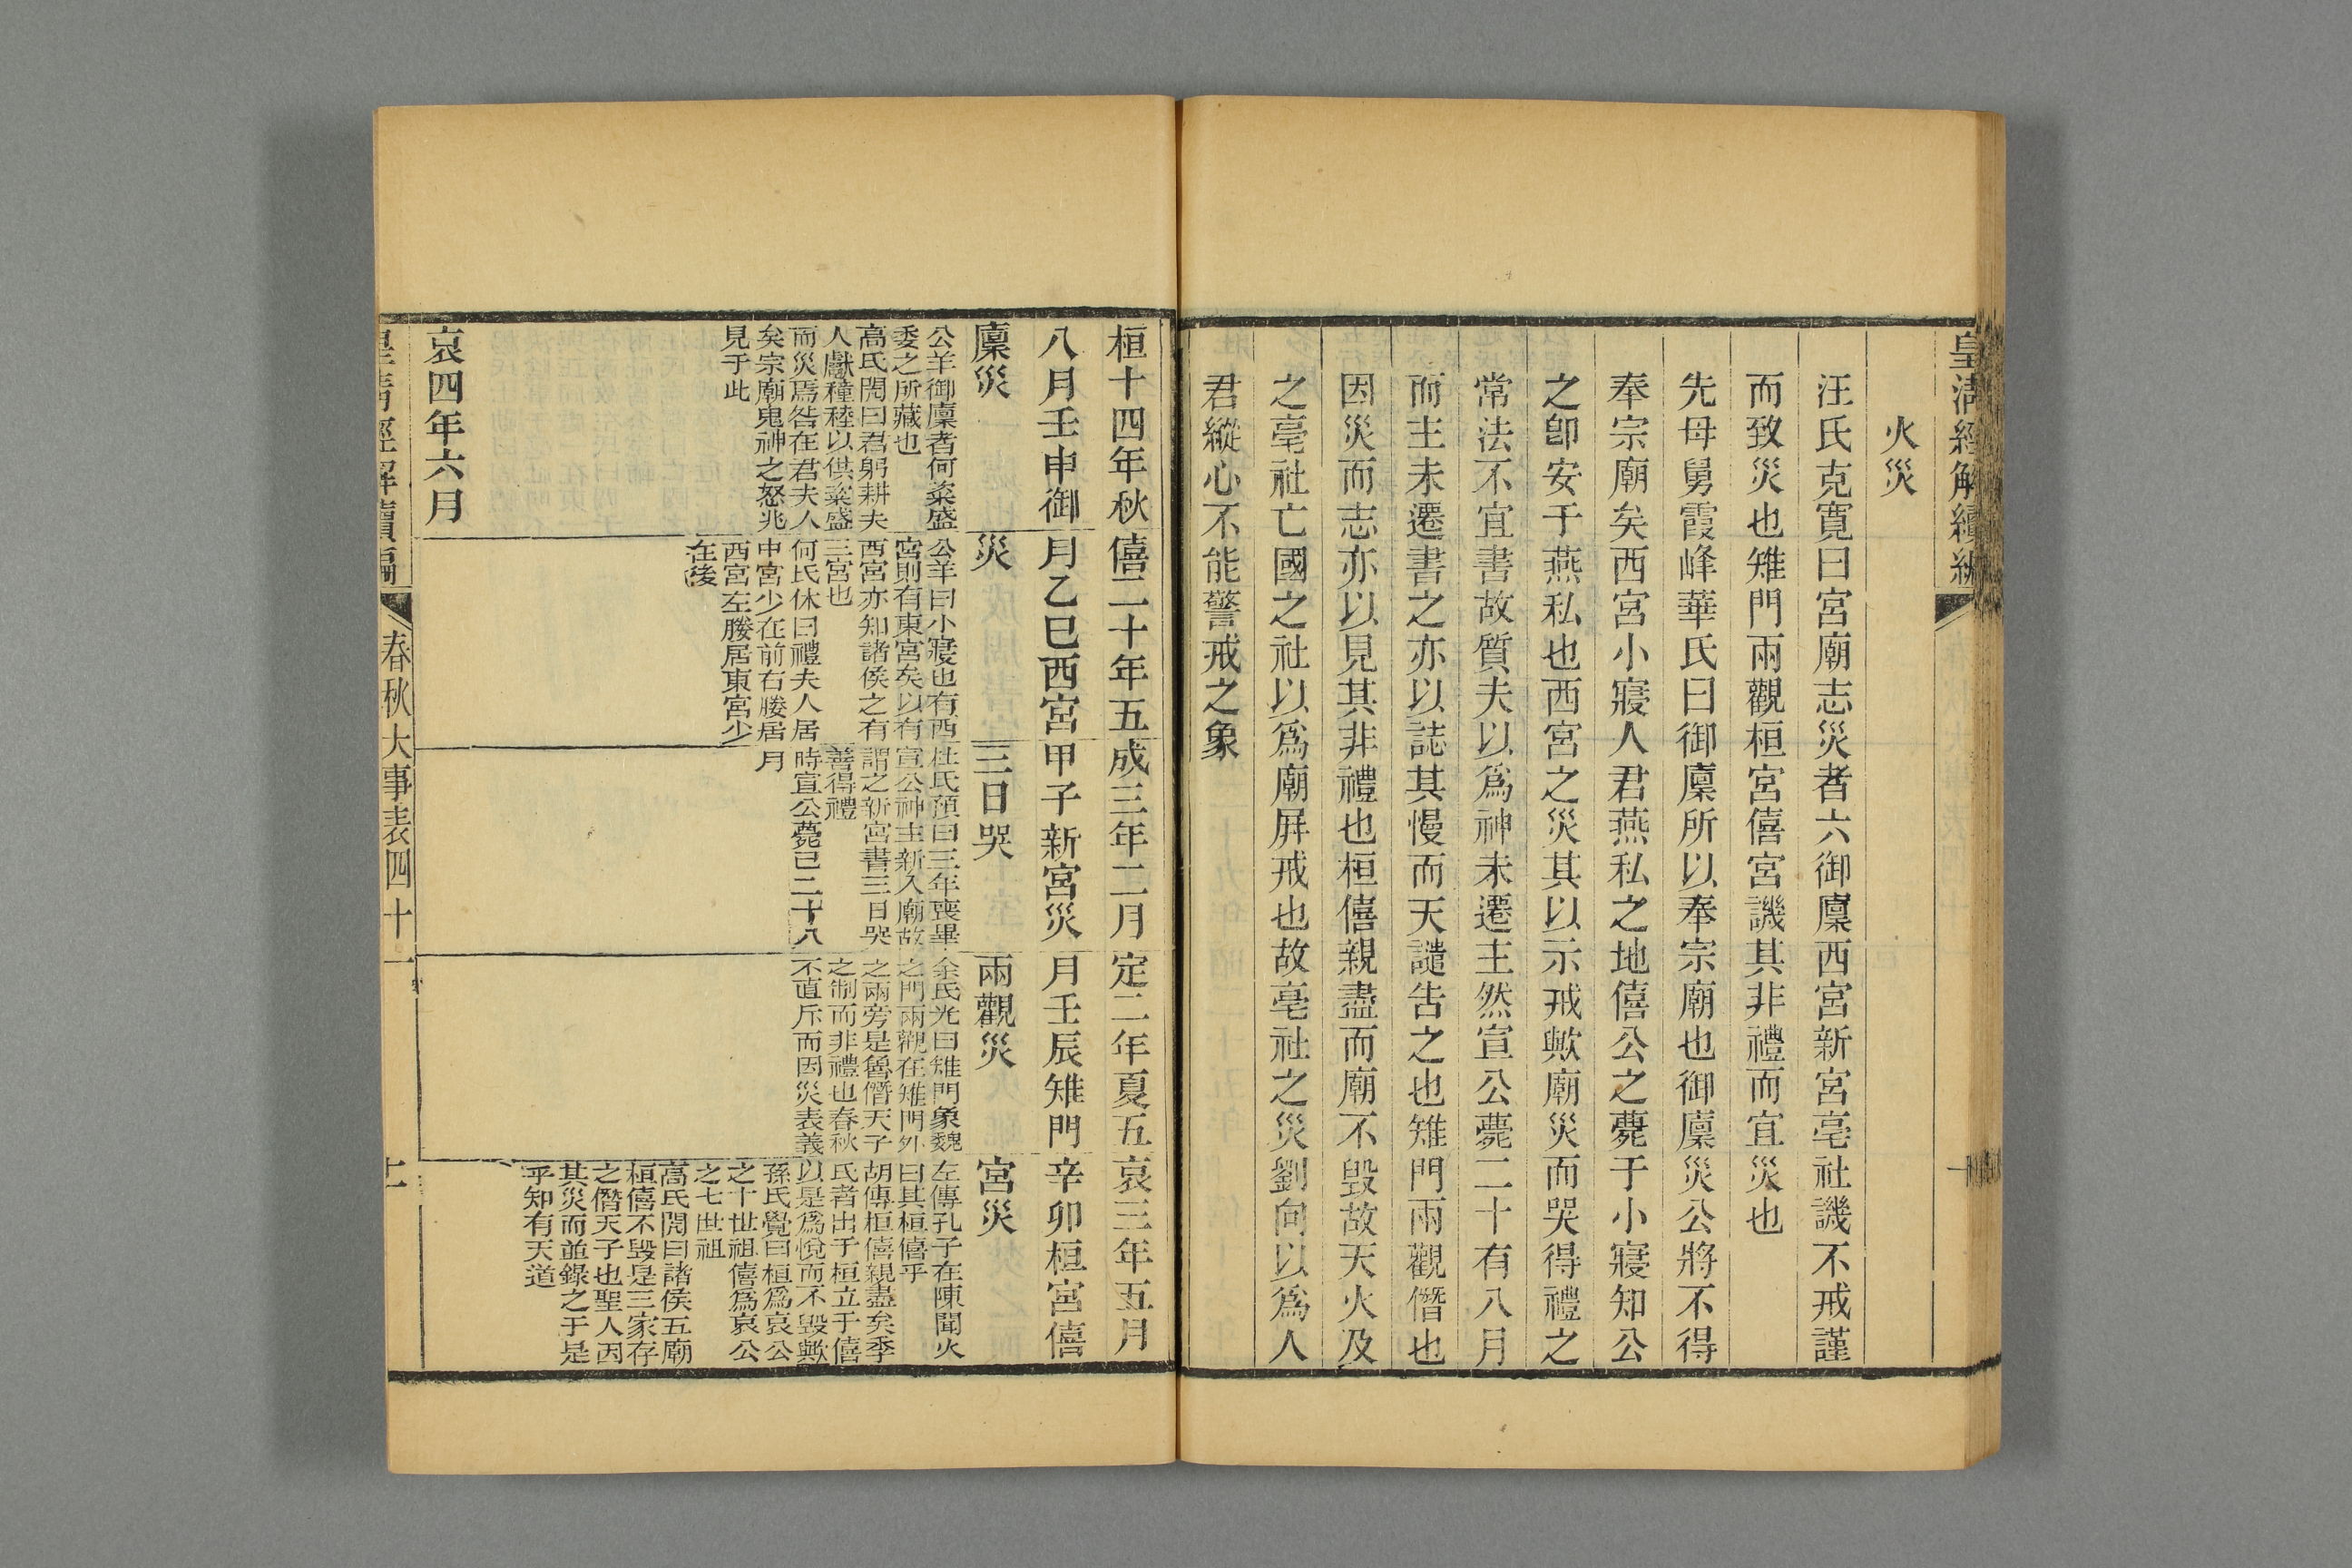 皇清經解續編
火災
汪氏克寬曰宮廟志災者六御廩西宮新宮亳社譏不戒謹
而致災也雉門兩觀桓宮僖宮譏其非禮而宜災也
先母舅霞峰華氏曰御廩所以奉宗廟也御廩災公將不得
奉宗廟矣西宮小寢人君燕私之地僖公之薨于小寢知公
之卽安于燕私也西宮之災其以示戒歟廟災而哭得禮之
常法不宜書故質夫以爲神未遷主然宣公薨二十有八月
而主未遷書之亦以誌其慢而天譴告之也雉門兩觀僭也
因災而志亦以見其非禮也桓僖親盡而廟不毀故天火及
之亳社亡國之社以爲廟屏戒也故亳社之災劉向以爲人
君縱心不能警戒之象
桓十四年秋
八月壬申御
廩災
公羊御廩者何粢盛
委之所藏也
高氏閌曰君躬耕夫
人獻穜稑以供粢盛
而災焉咎在君夫人
矣宗廟鬼神之怒兆
見于此
僖二十年五
月乙巳西宮
災
公羊曰小寢也有西
宮則有東宮矣以有
西宮亦知諸侯之有
三宮也
何氏休曰禮夫人居
中宮少在前右媵居
西宮左媵居東宮少
在後
成三年二月
甲子新宮災
三日哭
杜氏預曰三年喪畢
宣公神主新入廟故
謂之新宮書三日哭
善得禮
時宣公薨已二十八
月
定二年夏五
月壬辰雉門
兩觀災
余氏光曰雉門象魏
之門兩觀在雉門外
之兩旁是魯僭天子
之制而非禮也春秋
不直斥而因災表義
哀三年五月
辛卯桓宮僖
宮災
左傳孔子在陳聞火
曰其桓僖乎
胡傳桓僖親盡矣季
氏者出于桓立于僖
以是爲悅而不毀歟
孫氏覺曰桓爲哀公
之十世祖僖爲哀公
之七世祖
高氏閌曰諸侯五廟
桓僖不毀是三家存
之僭天子也聖人因
其災而並錄之于是
乎知有天道
哀四年六月
皇淸經解續編
春秋大事表四十一
十一